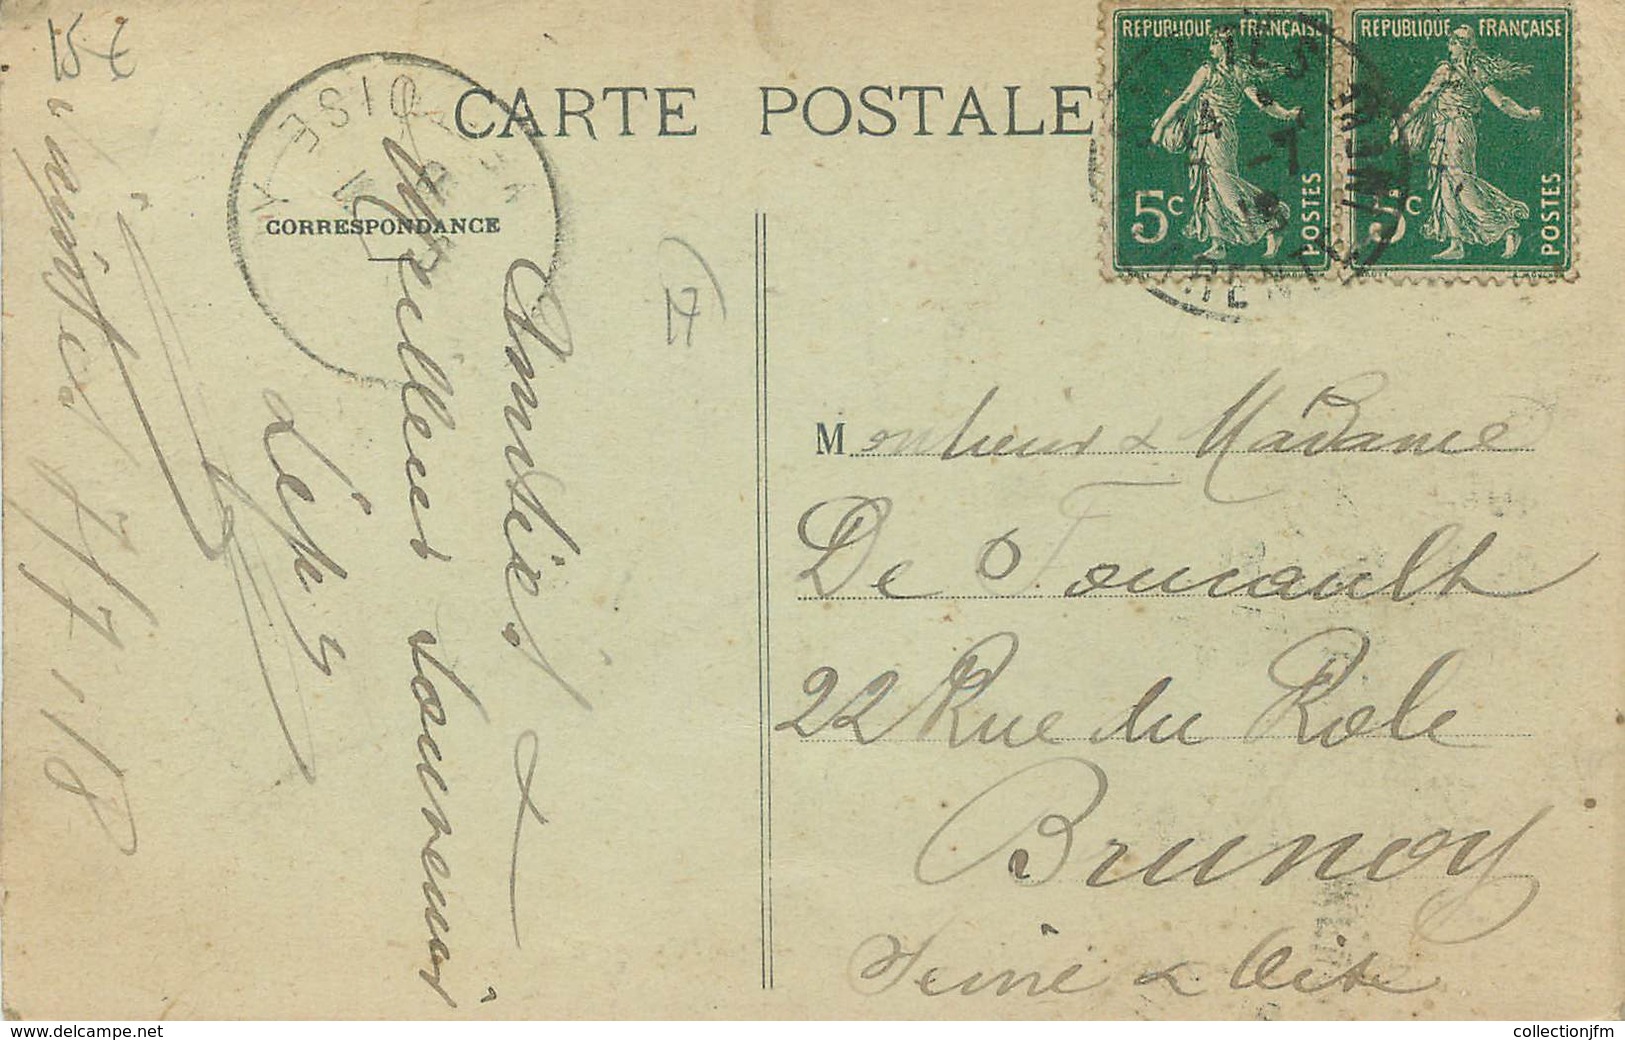 CARTE POSTALE
CORRESPONDANCE
REPUBLIQUE FRANÇAISE
5c
POSTES
REPUBLIQUE FRANÇAISE
5c
POSTES
Amitiés &
Meilleurs Souvenirs
7/7/18
Monsieur & Madame
De Foucault
22 Rue du Role
Brunoy
Seine & Oise
www.delcampe.net
collectionjfm